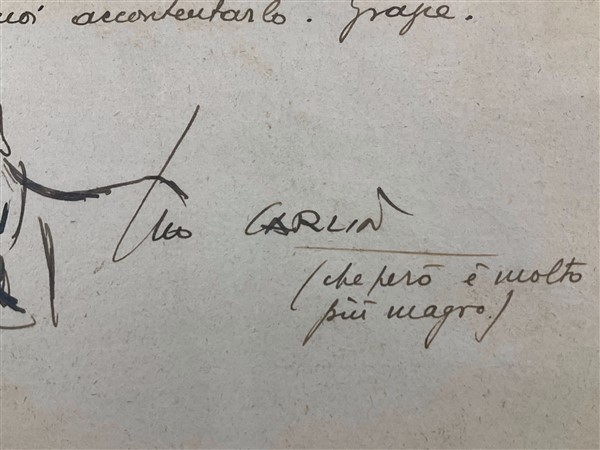 uoi accontentarlo. Grazie.
Tuo CARLIN
(che però è molto
più magro)